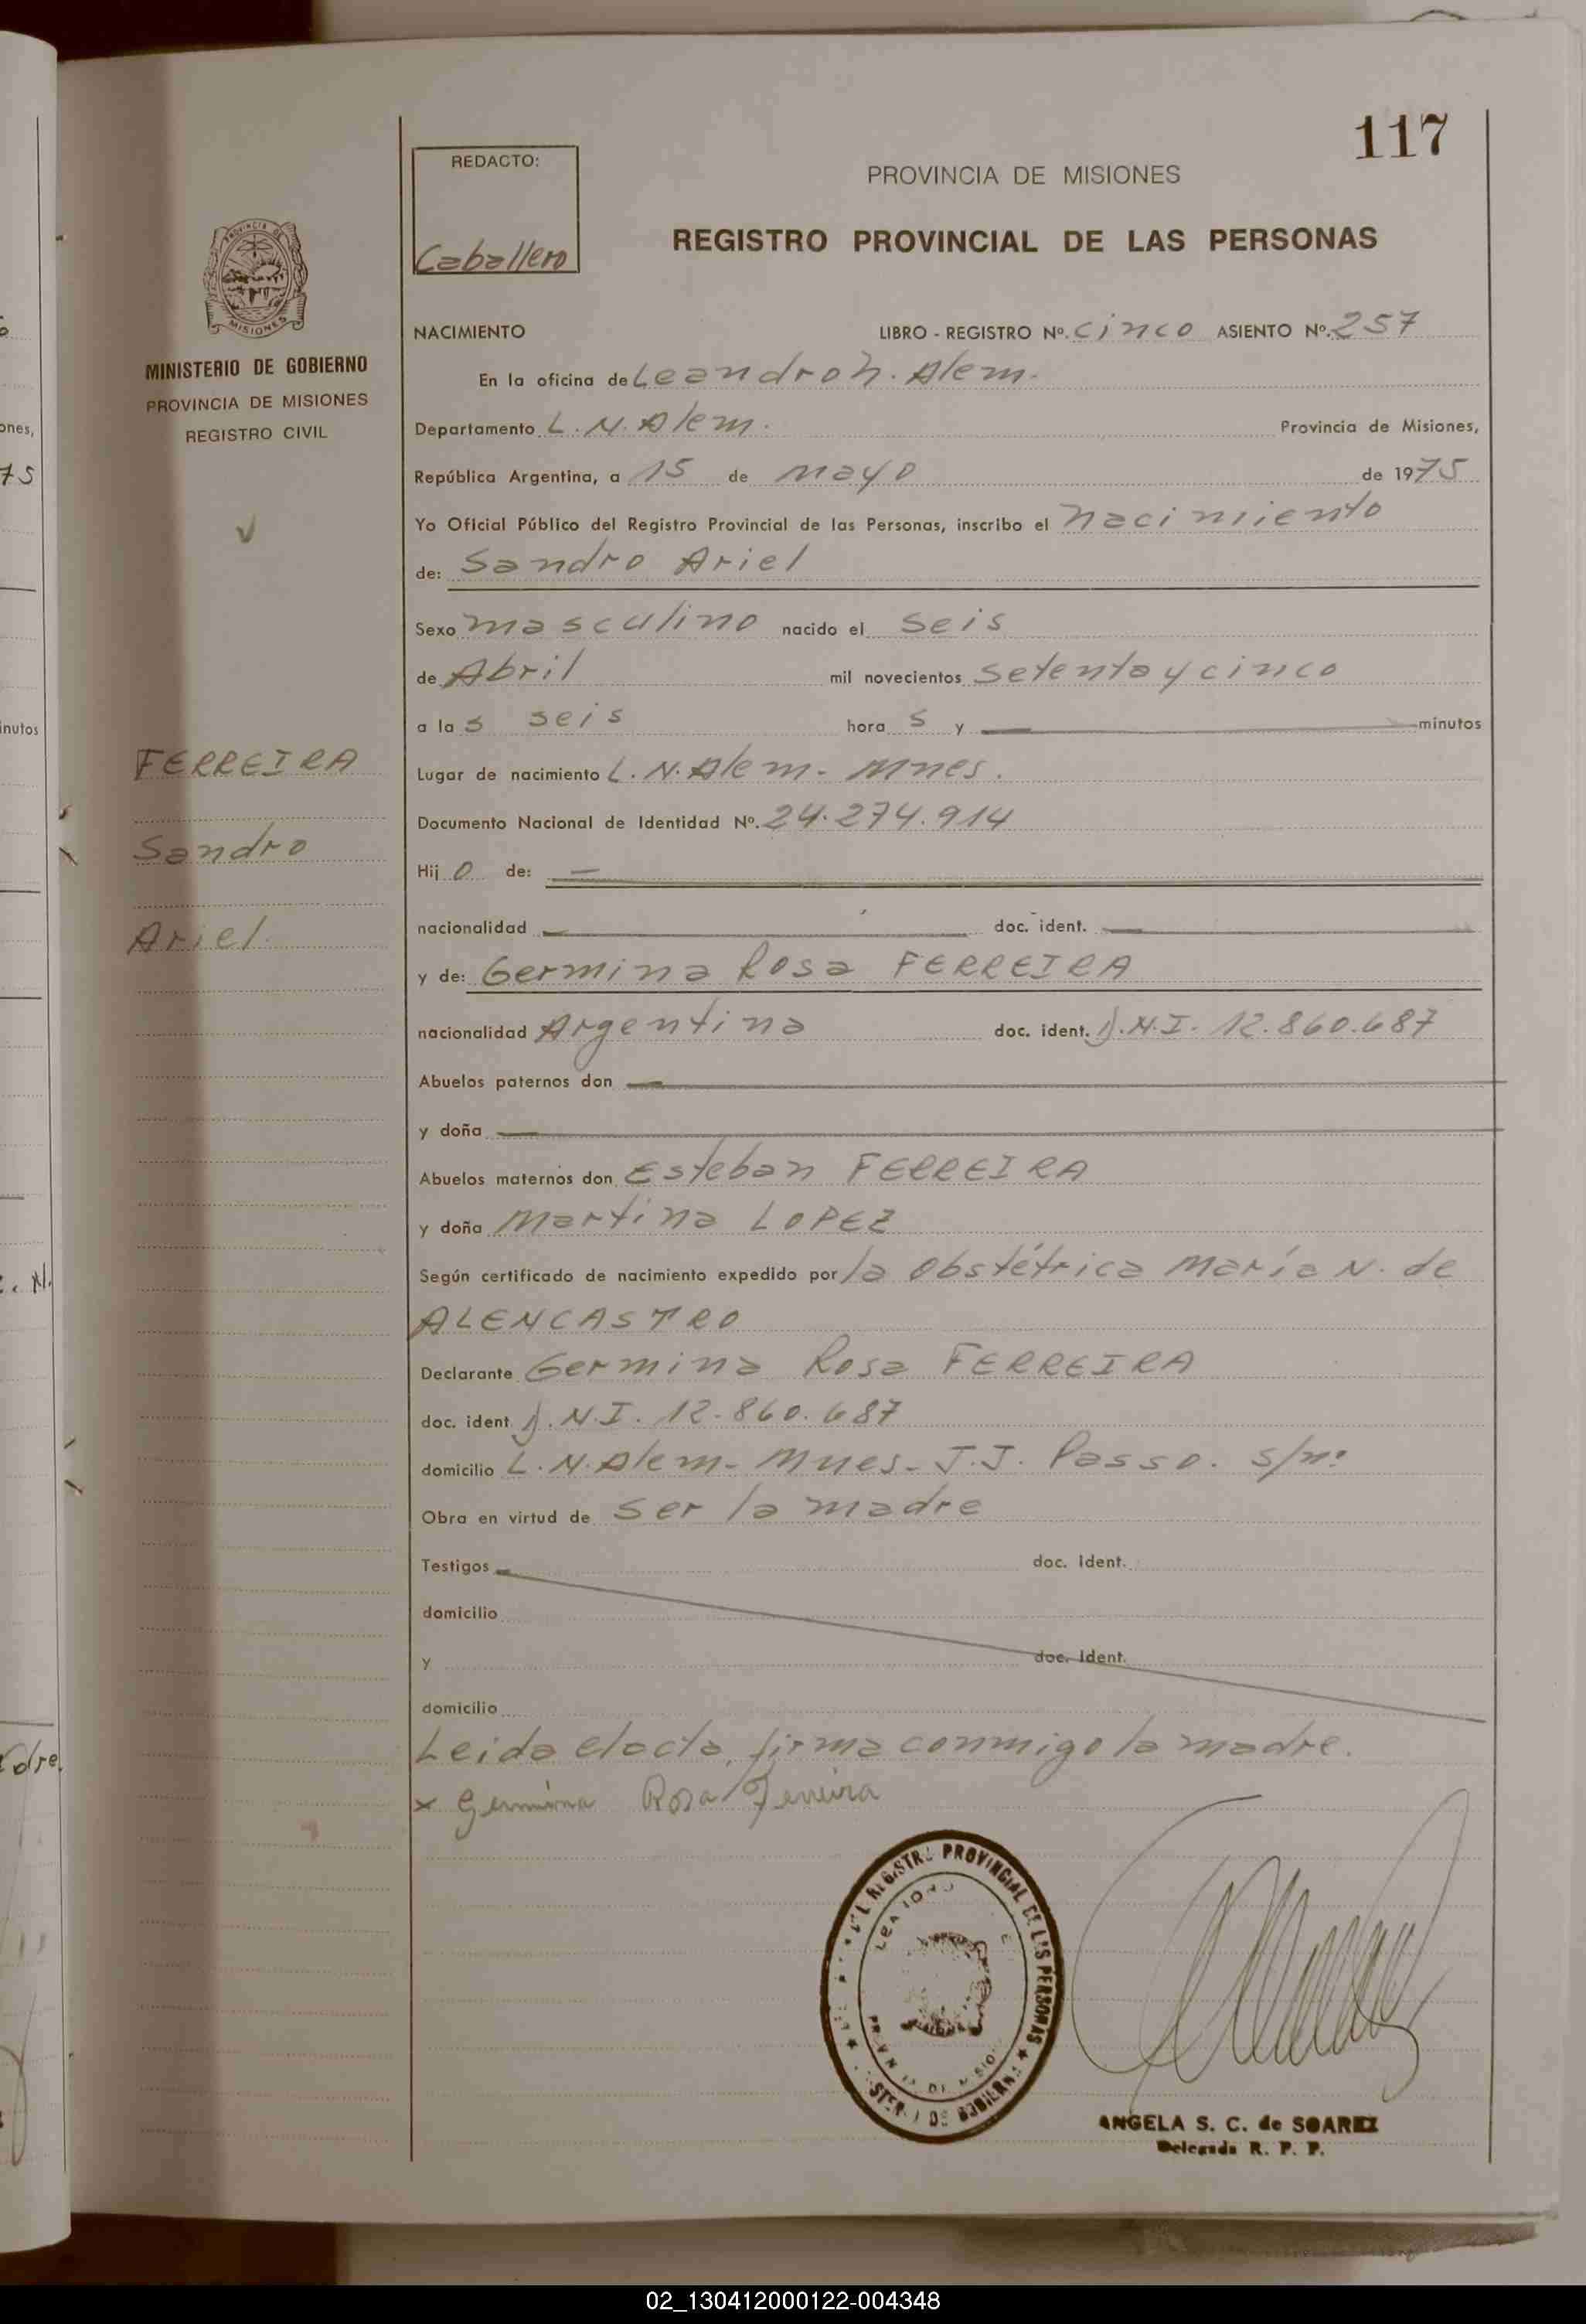 117
REDACTO:
Caballero
PROVINCIA DE MISIONES
REGISTRO PROVINCIAL DE LAS PERSONAS
MISIONES
MINISTERIO DE GOBIERNO
PROVINCIA DE MISIONES
REGISTRO CIVIL
FERREIRA
Sandro
Ariel.
NACIMIENTO LIBRO - REGISTRO Nº. cinco ASIENTO Nº. 257
En la oficina de Leandro N. Alem.
Departamento L. N. Alem. Provincia de Misiones,
República Argentina, a 15 de mayo de 1975
Yo Oficial Público del Registro Provincial de las Personas, inscribo el nacimiento
de: Sandro Ariel
Sexo masculino nacido el seis
de Abril mil novecientos setenta y cinco
a las seis horas y — minutos
Lugar de nacimiento L. N. Alem - Mnes.
Documento Nacional de Identidad Nº. 24.274.914
Hijo de: —
nacionalidad — doc. ident. —
y de: Germina Rosa FERREIRA
nacionalidad Argentina doc. ident. D.N.I. 12.860.687
Abuelos paternos don —
y doña —
Abuelos maternos don Esteban FERREIRA
y doña Martina LOPEZ
Según certificado de nacimiento expedido por la obstétrica María N. de
ALENCASTRO
Declarante Germina Rosa FERREIRA
doc. ident. D.N.I. 12.860.687
domicilio L. N. Alem - Mnes - J.J. Passo. s/nº
Obra en virtud de ser la madre
Testigos — doc. ident.
domicilio
y doc. ident.
domicilio
Leida el acta, firma conmigo la madre.
x Germina Rosa Ferreira
REGISTR PROVINCIAL DE L S PERSONAS
ANGELA S. C. de SOAREZ
Delegada R. P. P.
ones,
75
inutos
. N.
adre.
02_130412000122-004348